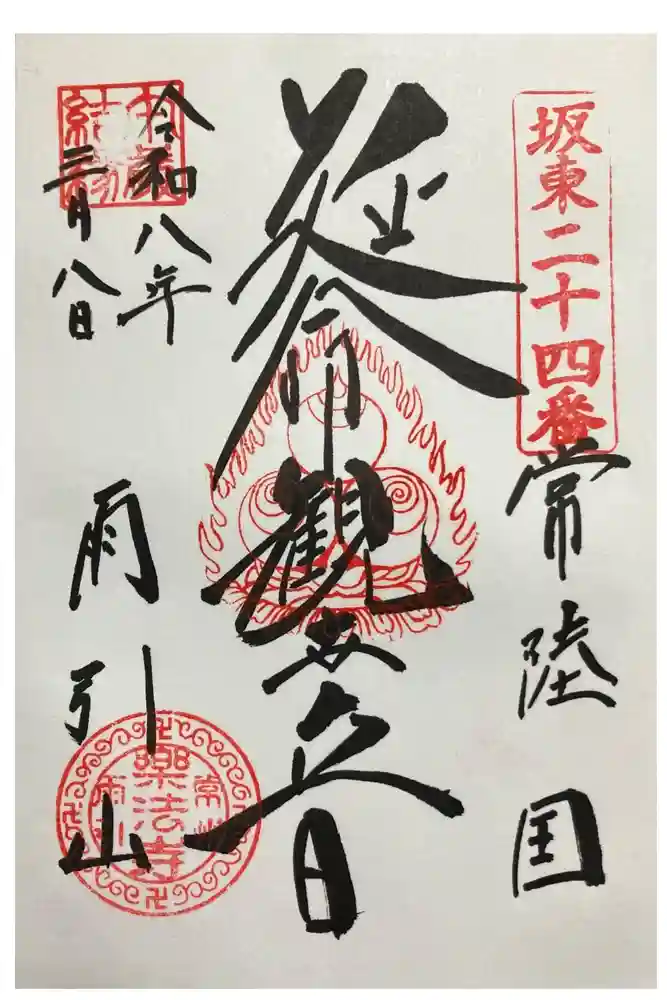 坂東二十四番
常陸囯
延命観世音
令和八年
三月八日
雨引山
常州
樂法寺
雨引